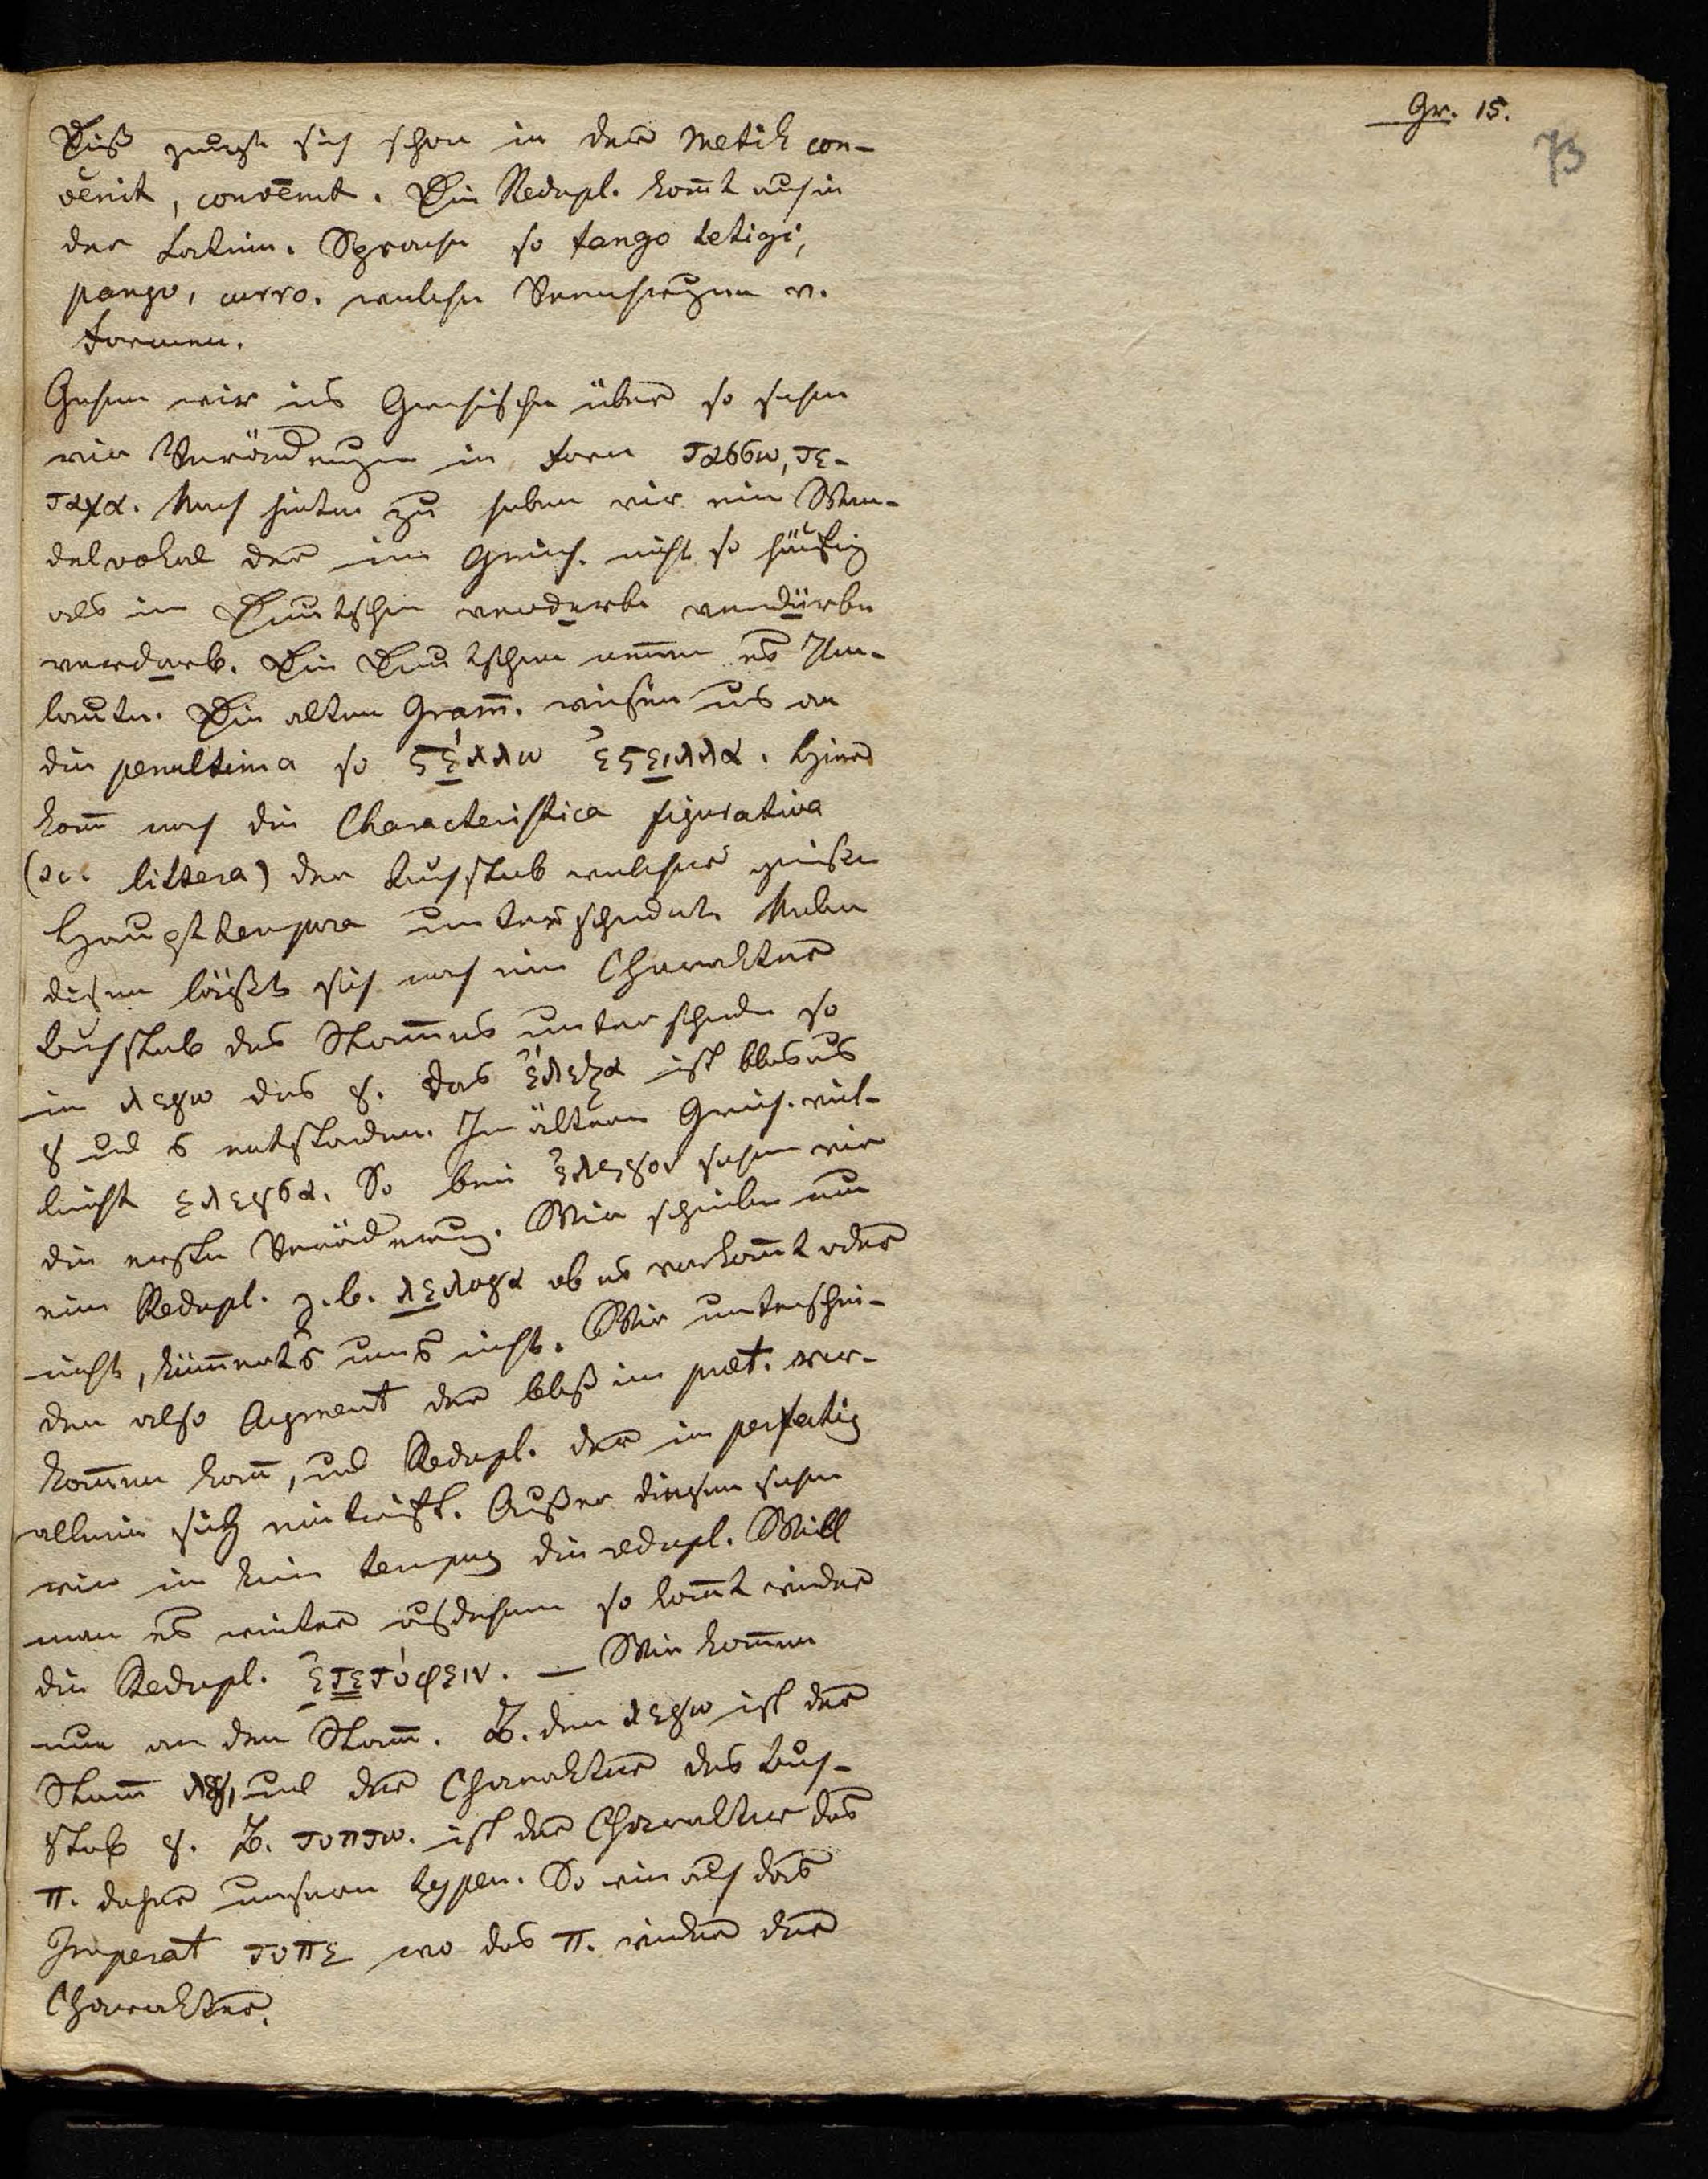 Gr. 15.
73
Diß zeigt sich schon in der Metrik con-
vĕnit, convēnit. Die Redupl. kom̄t auch in
der Latein. Sprache so tango tetigi,
pango, curro. welche Vermehrungen v.
Formen.
Gehen wir ins Griechische über so sehen
wir Veränderungen in Form ταϭϭω, τε-
ταχα. Nach hinten zu haben wir ein Wan-
delvokal der im Griech. nicht so häufig
als im Deutschen verderbe verdürbe
verdarb. Die Deutschen nennen es Um-
laute. Die alten Gram̄. weisen uns an
die penultima so ϛέλλω ἐϛειλλα. Hier
kom̄ noch die Characteristica figurativa
(sc. littera) der Buchstab welcher gewisse
Haupttempora unterscheidet. Neben
diesem läßt sich noch ein Charakter
Buchstab des Stam̄es unterscheiden so
in λεγω das γ. das ἔλεξα ist blos aus
γ und ϭ entstanden. Im ältern Griech. viel-
leicht ελεγϭα. So bei ἐλεγον sehen wir
die erste Veränderung. Wir schieben nun
eine Redupl. z.b. λελογα ob es vorkom̄t oder
nicht, küm̄ert's uns nicht. Wir unterschei-
den also Augment der bloß im praet. vor-
kom̄en kan̄, und Redupl. der im perfectis
allein sich eintrifft. Außer diesem sehen
wir in kein tempus die redupl. Will
man es weiter ausdehnen so kom̄t wieder
die Redupl. ἐτετύφειν. — Wir kom̄en
nun an den Stam̄. Z. den λεγω ist der
Stam̄ λεγ, und der Charakter des Buch-
stab γ. Z. τυπτω. ist der Charakter das
π. daher unseren typen. So wie auch das
Imperat τυπε wo das π. wieder der
Charakter.